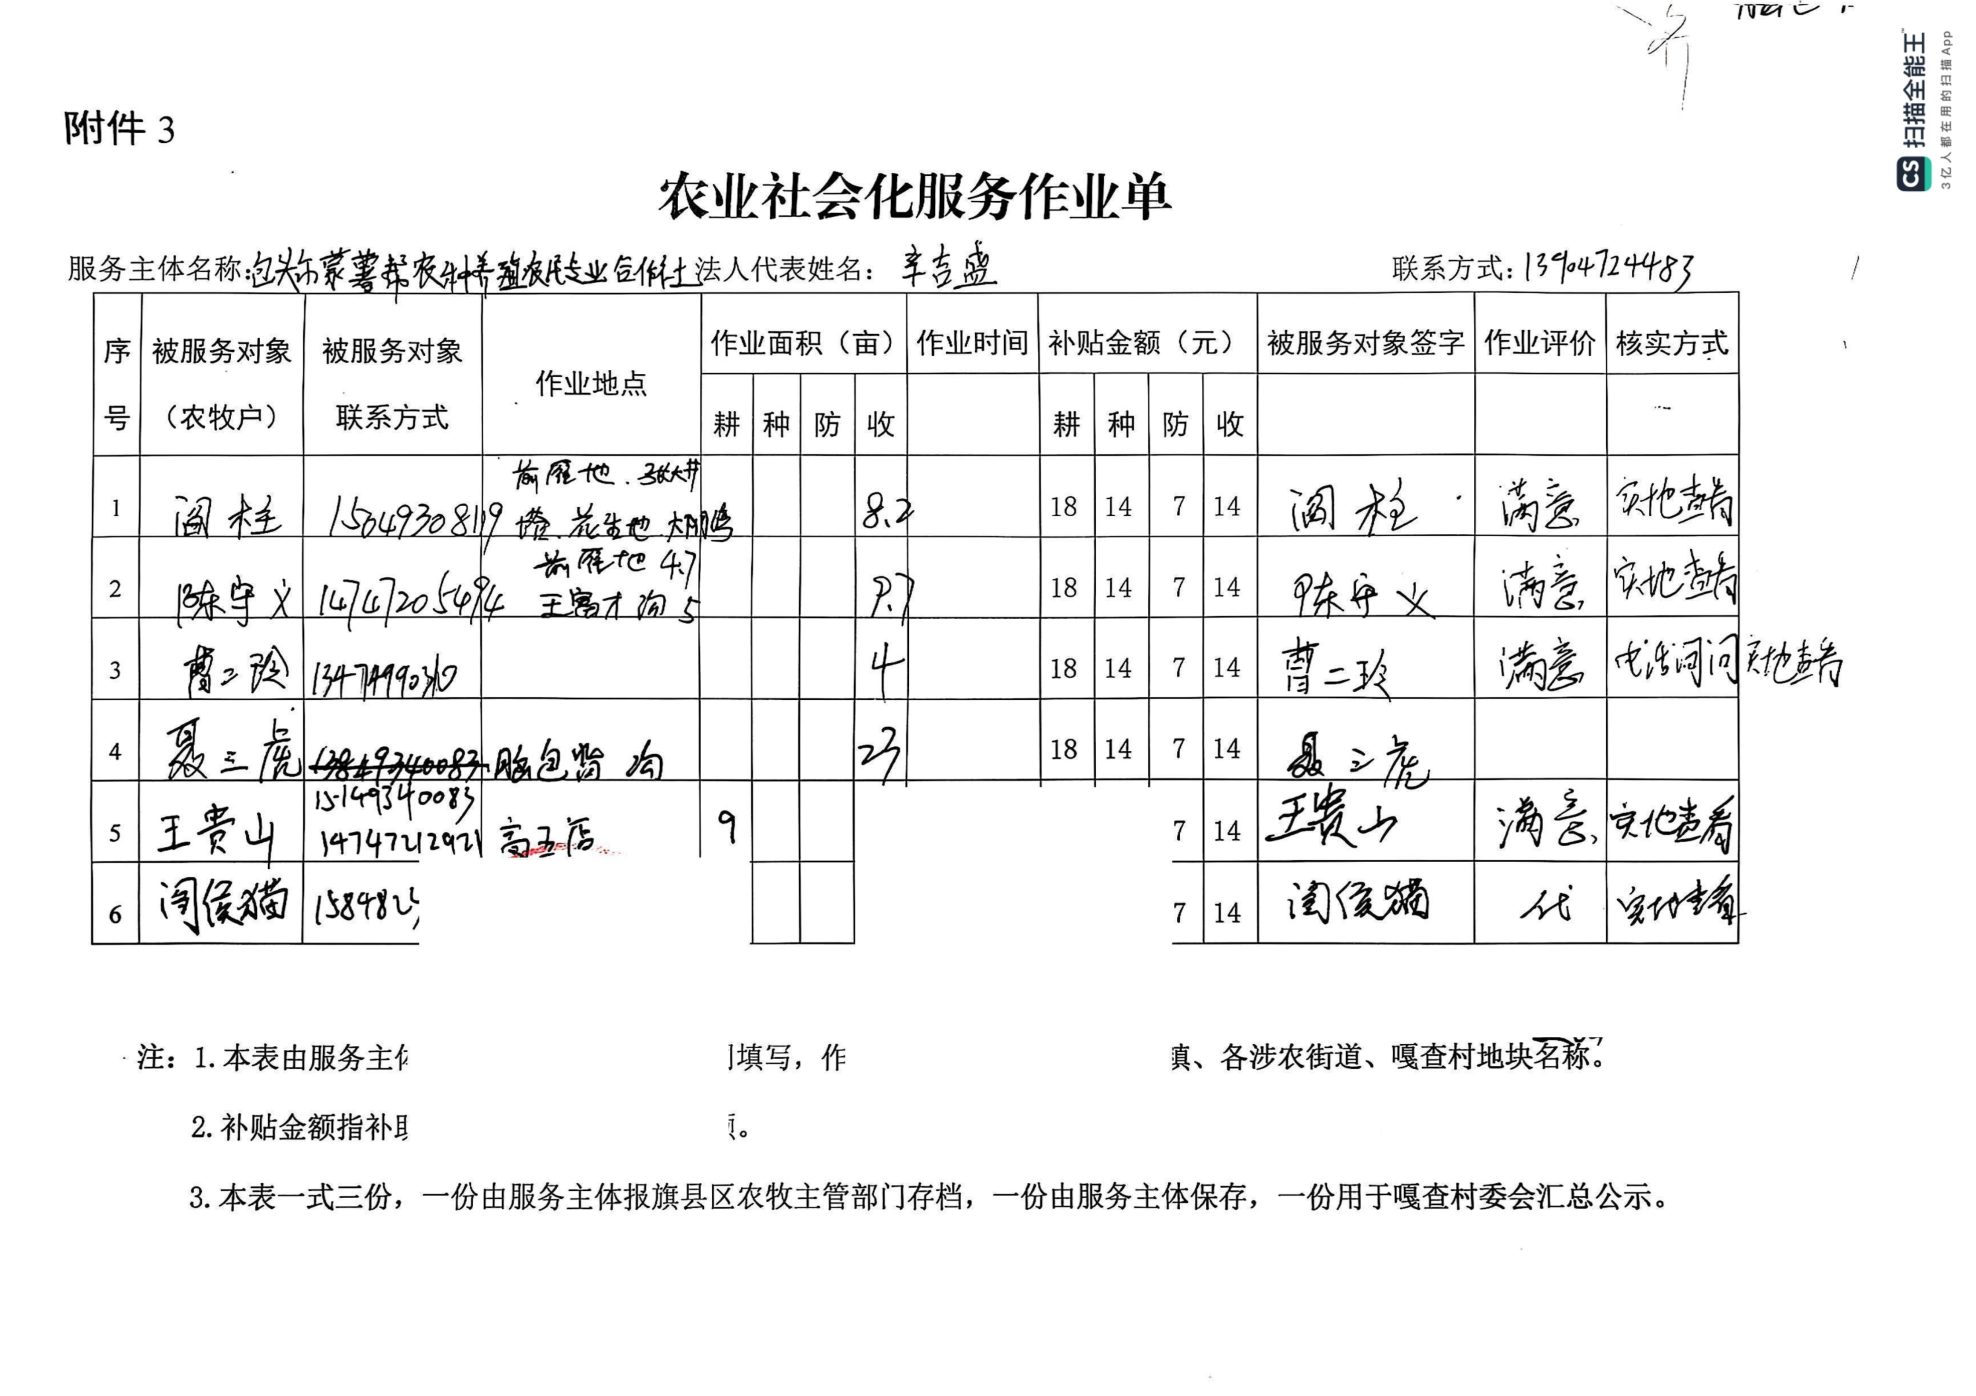 扫描全能王
3亿人都在用的扫描App
附件 3
农业社会化服务作业单
服务主体名称:包头市蒙薯帮农种养殖农民专业合作社 法人代表姓名: 辛吉盛 联系方式: 13904724483
序号 被服务对象（农牧户） 被服务对象联系方式 作业地点 作业面积（亩） 作业时间 补贴金额（元） 被服务对象签字 作业评价 核实方式
耕 种 防 收 耕 种 防 收
前雁地.
1 阎柱 15049308119 花生地 8.2 18 14 7 14 阎柱 满意 实地查看
前雁地 4.7
2 陈守义 14747205494 王富才沟 5 9.7 18 14 7 14 陈守义 满意 实地查看
3 曹二玲 4 18 14 7 14 曹二玲 满意 电话询问 实地查看
4 聂三虎 13849340083 沟 23 18 14 7 14 聂三虎
15149340083
5 王贵山 14747212921 高五店 9 7 14 王贵山 满意 实地查看
6 闫侯猫 1584825 7 14 闫侯猫 代 实地查看
注：1.本表由服务主体 填写，作 镇、各涉农街道、嘎查村地块名称。
2.补贴金额指补 。
3.本表一式三份，一份由服务主体报旗县区农牧主管部门存档，一份由服务主体保存，一份用于嘎查村委会汇总公示。